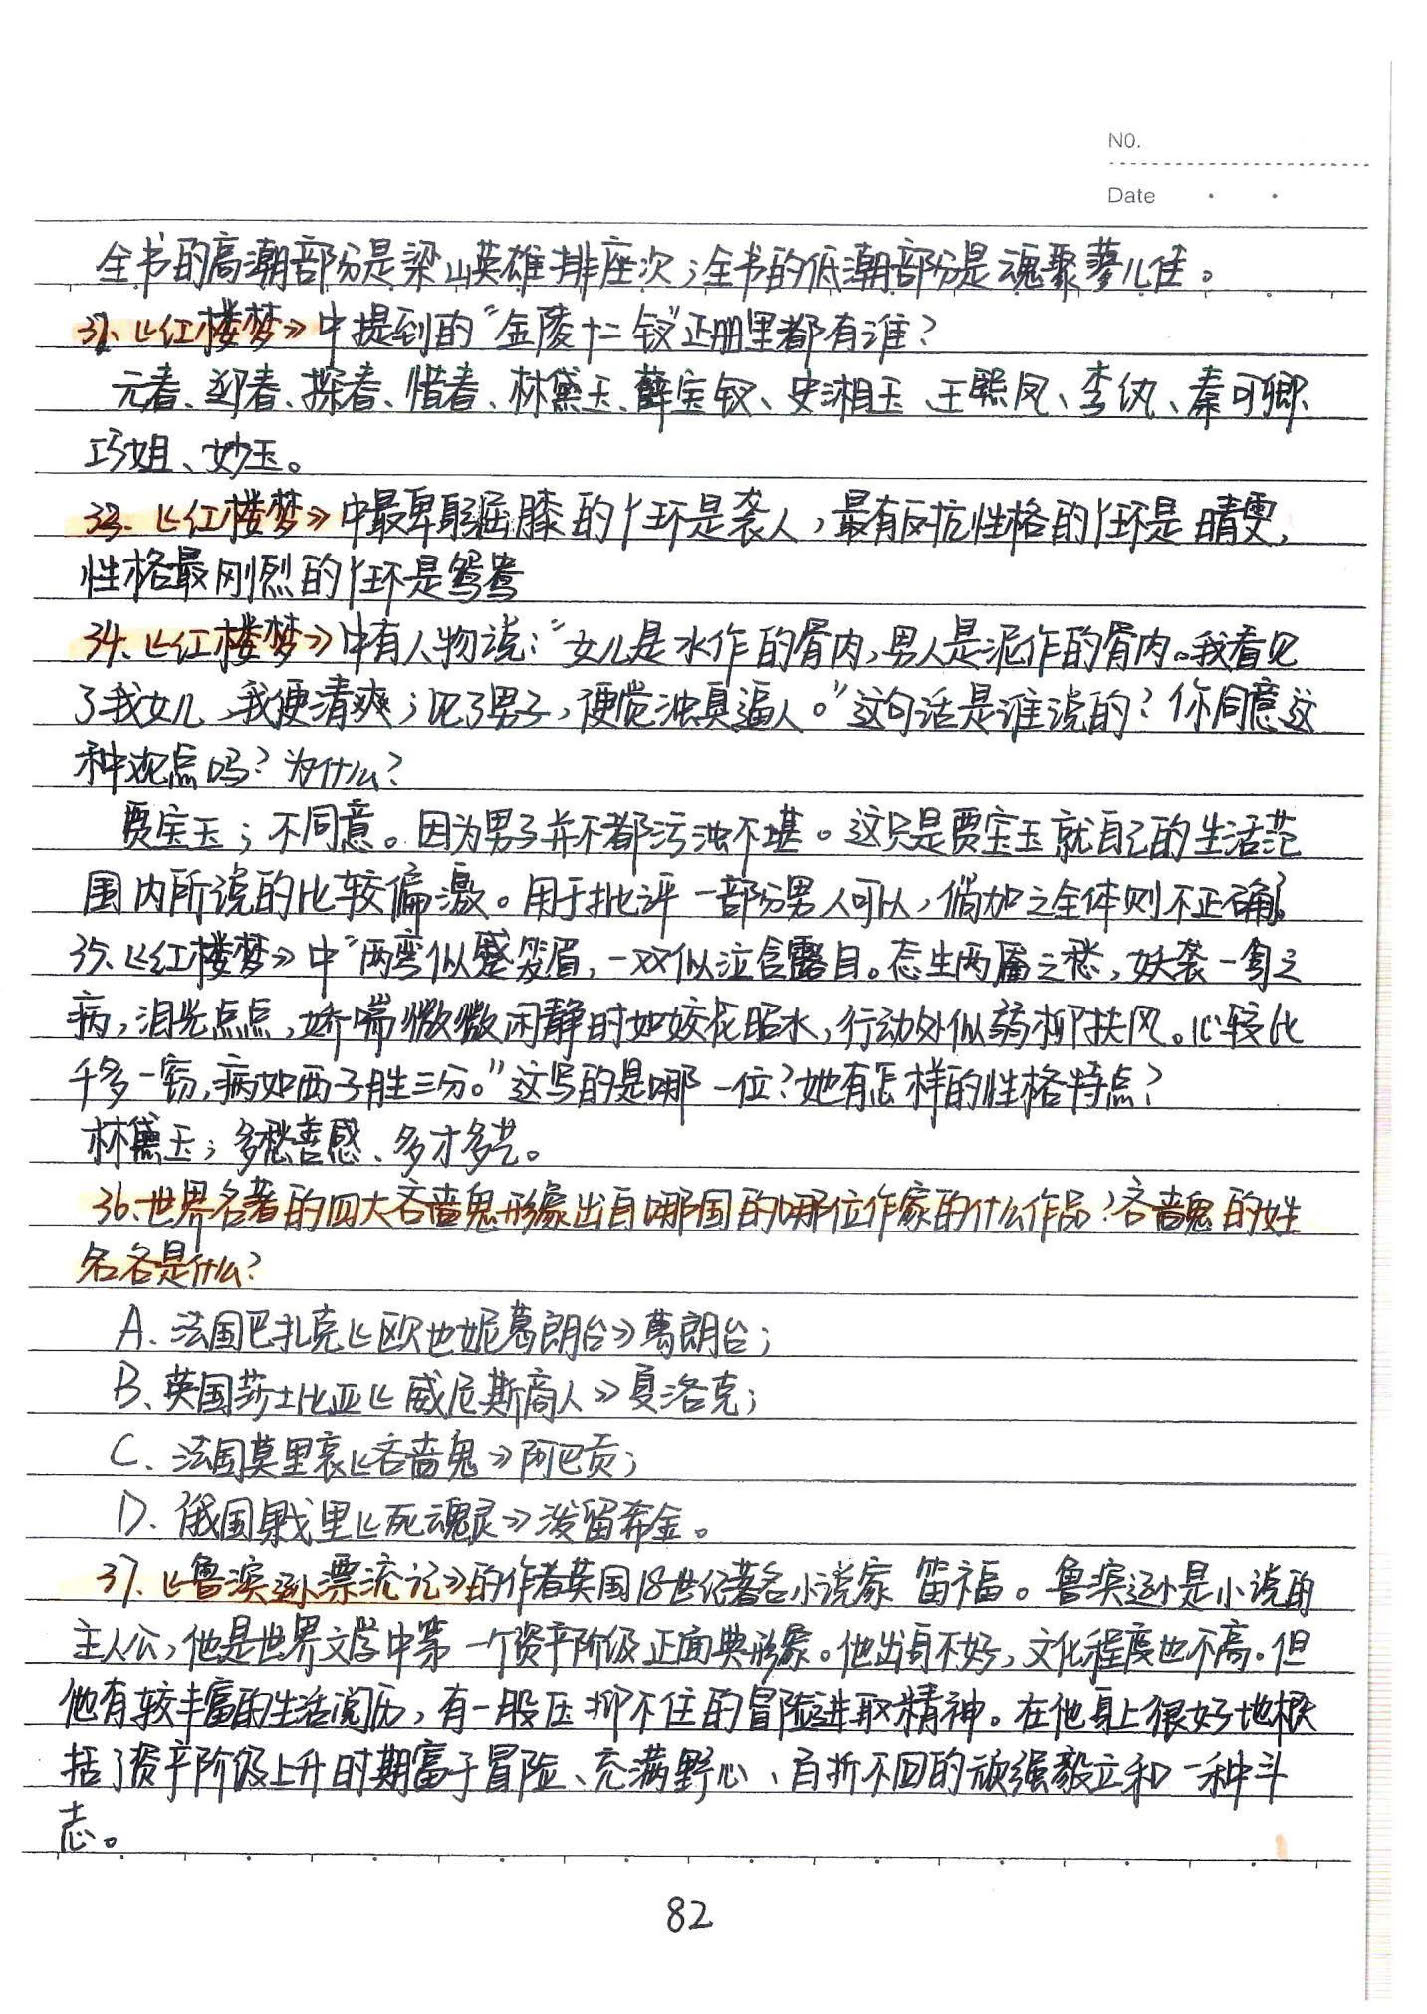 NO.
Date
全书的高潮部份是梁山英雄排座次；全书的低潮部份是魂聚蓼儿佳。
32、《红楼梦》中提到的“金陵十二钗”正册里都有谁？
元春、迎春、探春、惜春、林黛玉、薛宝钗、史湘玉、王熙凤、李纨、秦可卿、
巧姐、妙玉。
33、《红楼梦》中最卑躬屈膝的仆环是袭人，最有反抗性格的仆环是晴雯，
性格最刚烈的仆环是鸳鸯
34、《红楼梦》中有人物说：“女儿是水作的骨肉，男人是泥作的骨肉。我看见
了我女儿，我便清爽；见了男子，便觉浊臭逼人。”这句话是谁说的？你同意这
种观点吗？为什么？
贾宝玉；不同意。因为男子并不都污浊不堪。这只是贾宝玉就自己的生活范
围内所说的比较偏激。用于批评一部分男人可以，倘加之全体则不正确。
35、《红楼梦》中“两弯似蹙笼眉，一双似泣含露目。态生两靥之愁，妖袭一身之
病，泪光点点，娇喘微微闲静时如姣花昭水，行动处似弱柳扶风。心较比
千多一窍，病如西子胜三分。”这写的是哪一位？她有怎样的性格特点？
林黛玉；多愁善感、多才多艺。
36、世界名著的四大吝啬鬼形象出自哪国的哪位作家的什么作品？吝啬鬼的姓
名名是什么？
A、法国巴扎克《欧也妮葛朗台》葛朗台；
B、英国莎士比亚《威尼斯商人》夏洛克；
C、法国莫里哀《吝啬鬼》阿巴贡；
D、俄国果戈里《死魂灵》泼留希金。
37、《鲁滨逊漂流记》的作者英国18世纪著名小说家 笛福。鲁滨逊是小说的
主人公，他是世界文学中第一个资产阶级正面典形象。他出身不好，文化程度也不高。但
他有较丰富的生活阅历，有一股压抑不住的冒险进取精神。在他身上很好地概
括了资产阶级上升时期富于冒险、充满野心、百折不回的顽强毅立和一种斗
志。
82